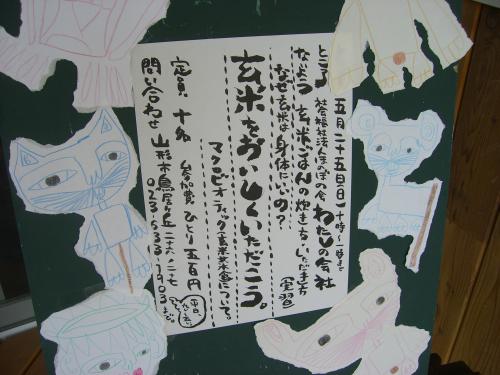 五月二十五日(日) 十時〜一時まで
ところ 社会福祉法人ほのぼの会 わたしの会社
なかよう 玄米ごはんの炊き方・いただき方(実習)
なぜ玄米は身体にいいの?
玄米をおいしくいただこう。
マクロビオティック、玄米菜食について。
定員 十名 参加費 ひとり五百円
問い合わせ 山形市鳥居ヶ丘二十六-二七